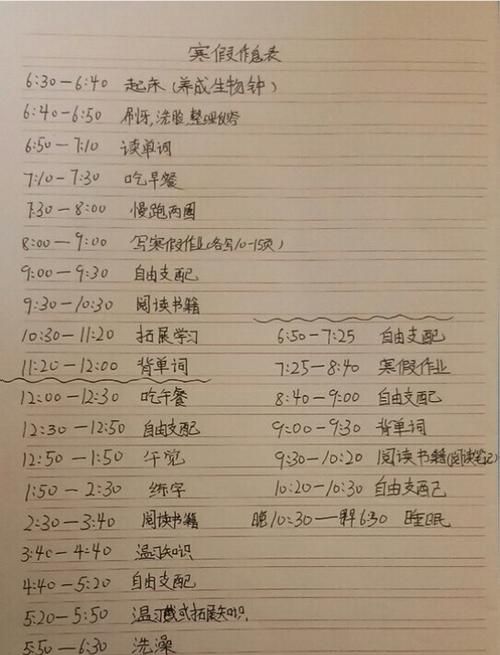 寒假作息表
6:30—6:40 起床(养成生物钟)
6:40—6:50 刷牙,洗脸,整理仪容
6:50—7:10 读单词
7:10—7:30 吃早餐
7:30—8:00 慢跑两圈
8:00—9:00 写寒假作业(各写10-15页)
9:00—9:30 自由支配
9:30—10:30 阅读书籍
10:30—11:20 拓展学习
11:20—12:00 背单词
12:00—12:30 吃午餐
12:30—12:50 自由支配
12:50—1:50 午觉
1:50—2:30 练字
2:30—3:40 阅读书籍
3:40—4:40 温习知识
4:40—5:20 自由支配
5:20—5:50 温习或拓展知识
5:50—6:30 洗澡
6:50—7:25 自由支配
7:25—8:40 寒假作业
8:40—9:00 自由支配
9:00—9:30 背单词
9:30—10:20 阅读书籍(阅读笔记)
10:20—10:30 自由支配
晚10:30—早6:30 睡眠